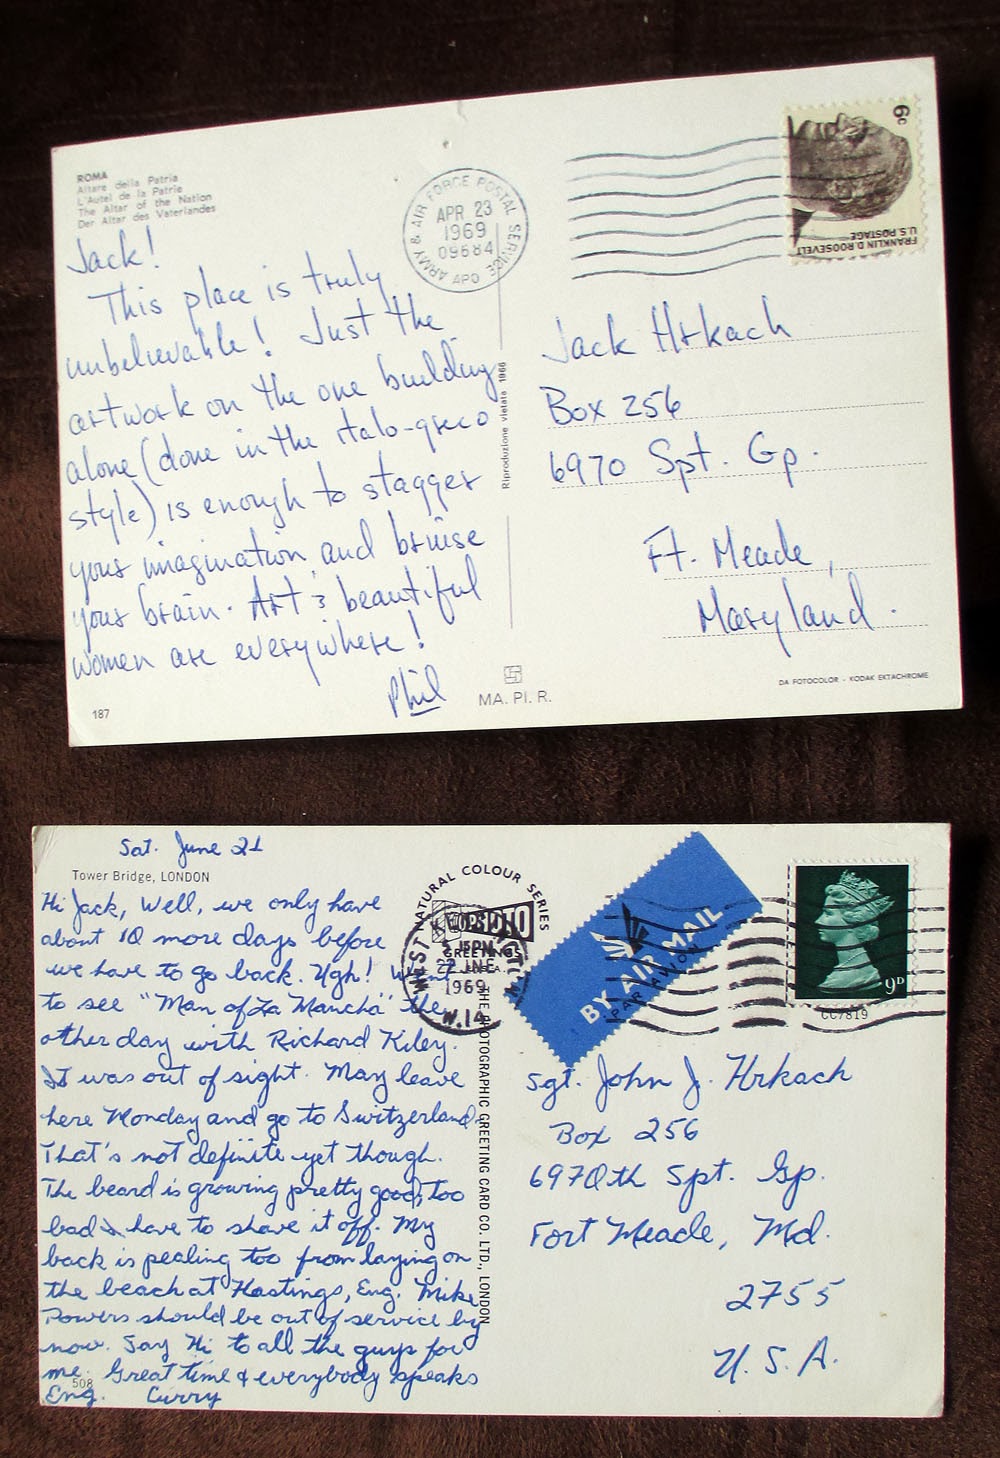 ROMA
Altare della Patria
L'Autel de la Patrie
The Altar of the Nation
Der Altar des Vaterlandes
Jack!
This place is truly
unbelievable! Just the
artwork on the one building
alone (done in the italo-greco
style) is enough to stagger
your imagination and bruise
your brain. Art & beautiful
women are everywhere!
Phil
187
ARMY & AIR FORCE POSTAL SERVICE
APR 23
1969
09684
APO
6c
FRANKLIN D. ROOSEVELT
U.S. POSTAGE
Riproduzione vietata 1966
Jack Hrkach
Box 256
6970 Spt. Gp.
Ft. Meade,
Maryland.
MA. PI. R.
DA FOTOCOLOR - KODAK EKTACHROME
Sat. June 21
Tower Bridge, LONDON
Hi Jack, Well, we only have
about 10 more days before
we have to go back. Ugh! Went
to see "Man of La Mancha" the
other day with Richard Kiley.
It was out of sight. May leave
here Monday and go to Switzerland.
That's not definite yet though.
The beard is growing pretty good, too
bad I have to shave it off. My
back is pealing too from laying on
the beach at Hastings, Eng. Mike
Powers should be out of service by
now. Say Hi to all the guys for
me. Great time & everybody speaks
Eng. Curry
508
NATURAL COLOUR SERIES
GREETINGS
22 JNE
1969
W.14
THE PHOTOGRAPHIC GREETING CARD CO. LTD., LONDON
BY AIR MAIL
PAR AVION
9D
CC7819
Sgt. John J. Hrkach
Box 256
6970th Spt. Gp.
Fort Meade, Md.
2755
U.S.A.